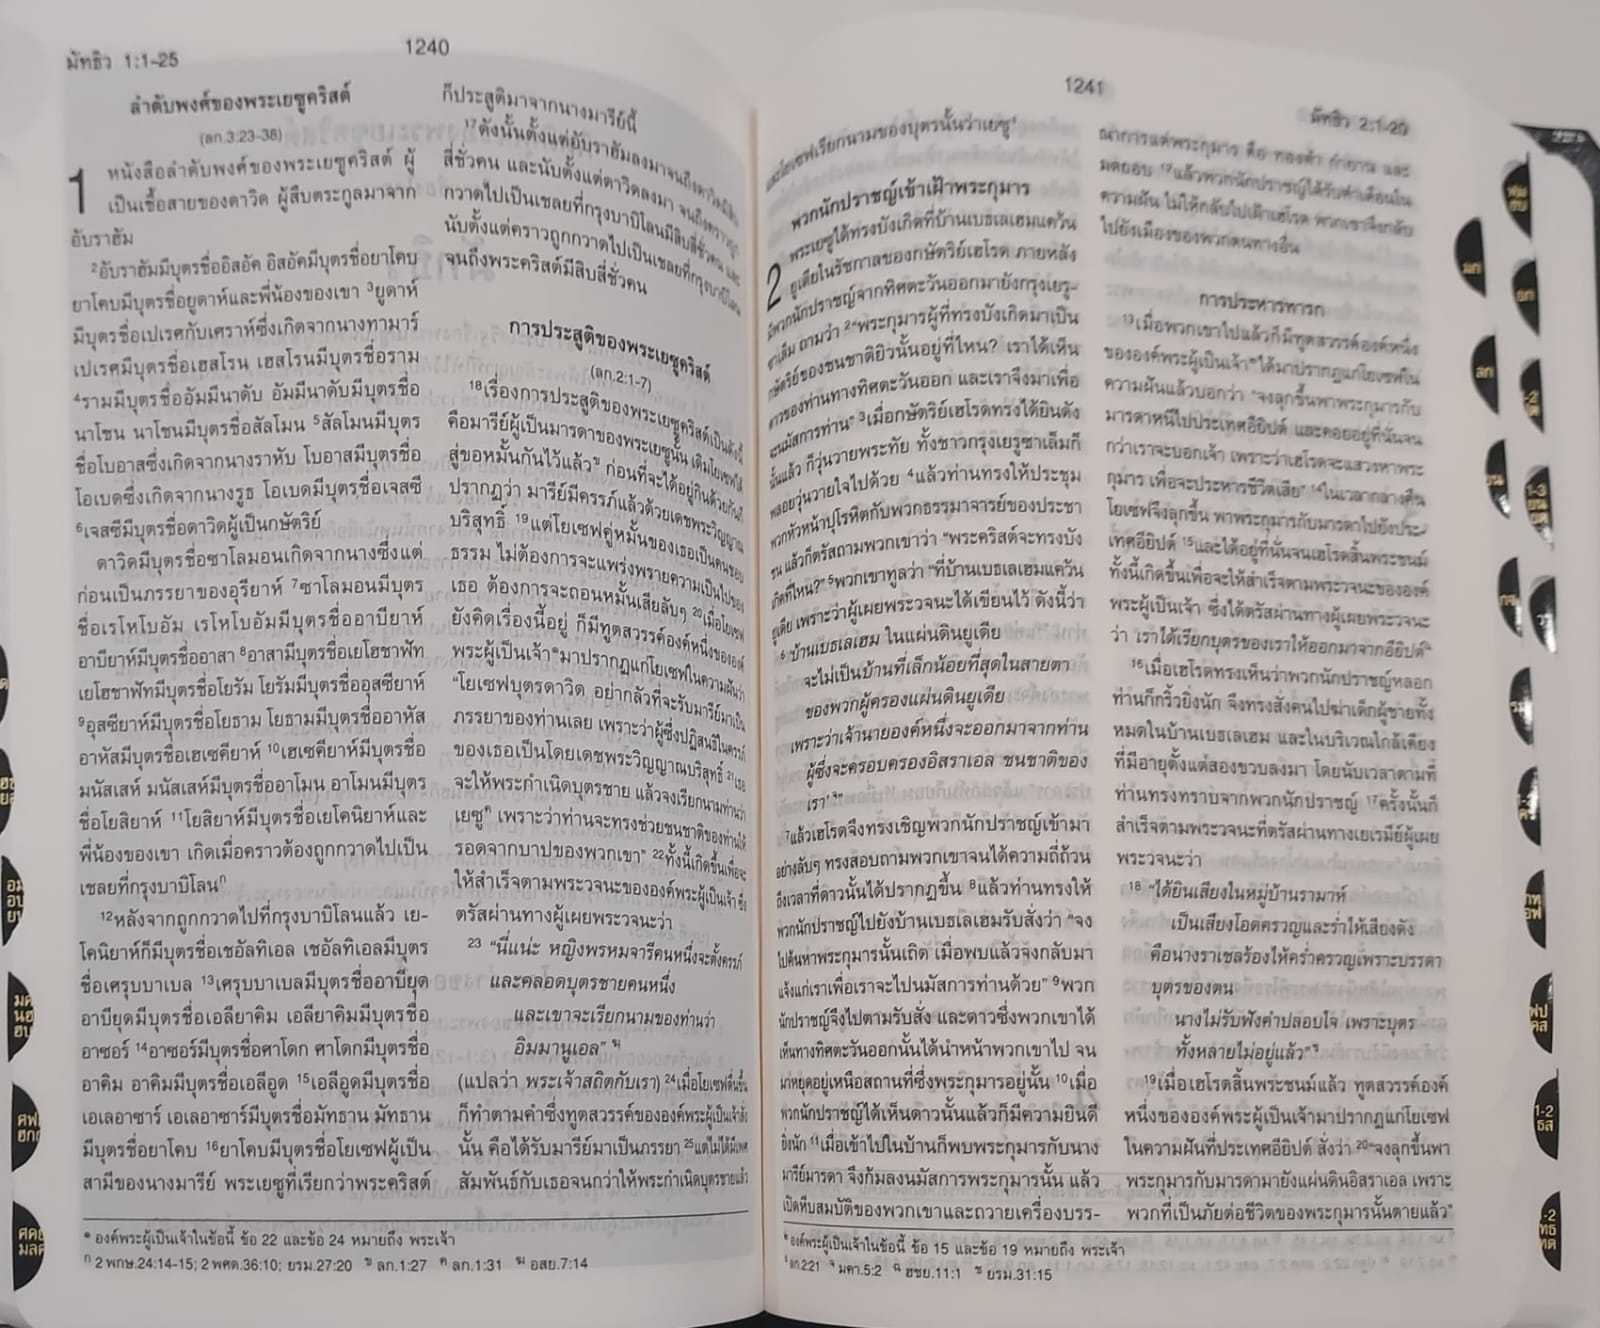 มัทธิว 1:1-25
1240
ลำดับพงศ์ของพระเยซูคริสต์
(ลก.3:23-38)
1 หนังสือลำดับพงศ์ของพระเยซูคริสต์ ผู้
เป็นเชื้อสายของดาวิด ผู้สืบตระกูลมาจาก
อับราฮัม
2อับราฮัมมีบุตรชื่ออิสอัค อิสอัคมีบุตรชื่อยาโคบ
ยาโคบมีบุตรชื่อยูดาห์และพี่น้องของเขา 3ยูดาห์
มีบุตรชื่อเปเรศกับเศราห์ซึ่งเกิดจากนางทามาร์
เปเรศมีบุตรชื่อเฮสโรน เฮสโรนมีบุตรชื่อราม
4รามมีบุตรชื่ออัมมีนาดับ อัมมีนาดับมีบุตรชื่อ
นาโชน นาโชนมีบุตรชื่อสัลโมน 5สัลโมนมีบุตร
ชื่อโบอาสซึ่งเกิดจากนางราหับ โบอาสมีบุตรชื่อ
โอเบดซึ่งเกิดจากนางรูธ โอเบดมีบุตรชื่อเจสซี
6เจสซีมีบุตรชื่อดาวิดผู้เป็นกษัตริย์
ดาวิดมีบุตรชื่อซาโลมอนเกิดจากนางซึ่งแต่
ก่อนเป็นภรรยาของอุรียาห์ 7ซาโลมอนมีบุตร
ชื่อเรโหโบอัม เรโหโบอัมมีบุตรชื่ออาบียาห์
อาบียาห์มีบุตรชื่ออาสา 8อาสามีบุตรชื่อเยโฮชาฟัท
เยโฮชาฟัทมีบุตรชื่อโยรัม โยรัมมีบุตรชื่ออุสซียาห์
9อุสซียาห์มีบุตรชื่อโยธาม โยธามมีบุตรชื่ออาหัส
อาหัสมีบุตรชื่อเฮเซคียาห์ 10เฮเซคียาห์มีบุตรชื่อ
มนัสเสห์ มนัสเสห์มีบุตรชื่ออาโมน อาโมนมีบุตร
ชื่อโยสิยาห์ 11โยสิยาห์มีบุตรชื่อเยโคนิยาห์และ
พี่น้องของเขา เกิดเมื่อคราวต้องถูกกวาดไปเป็น
เชลยที่กรุงบาบิโลนก
12หลังจากถูกกวาดไปที่กรุงบาบิโลนแล้ว เย-
โคนิยาห์ก็มีบุตรชื่อเชอัลทิเอล เชอัลทิเอลมีบุตร
ชื่อเศรุบบาเบล 13เศรุบบาเบลมีบุตรชื่ออาบียุด
อาบียุดมีบุตรชื่อเอลียาคิม เอลียาคิมมีบุตรชื่อ
อาซอร์ 14อาซอร์มีบุตรชื่อศาโดก ศาโดกมีบุตรชื่อ
อาคิม อาคิมมีบุตรชื่อเอลีอูด 15เอลีอูดมีบุตรชื่อ
เอเลอาซาร์ เอเลอาซาร์มีบุตรชื่อมัทธาน มัทธาน
มีบุตรชื่อยาโคบ 16ยาโคบมีบุตรชื่อโยเซฟผู้เป็น
สามีของนางมารีย์ พระเยซูที่เรียกว่าพระคริสต์
ก็ประสูติมาจากนางมารีย์นี้
17ดังนั้นตั้งแต่อับราฮัมลงมาจนถึงดาวิดมีสิบ
สี่ชั่วคน และนับตั้งแต่ดาวิดลงมา จนถึงคราวถูก
กวาดไปเป็นเชลยที่กรุงบาบิโลนมีสิบสี่ชั่วคน และ
นับตั้งแต่คราวถูกกวาดไปเป็นเชลยที่กรุงบาบิโลน
จนถึงพระคริสต์มีสิบสี่ชั่วคน
การประสูติของพระเยซูคริสต์
(ลก.2:1-7)
18เรื่องการประสูติของพระเยซูคริสต์เป็นดังนี้
คือมารีย์ผู้เป็นมารดาของพระเยซูนั้น เดิมโยเซฟได้
สู่ขอหมั้นกันไว้แล้วข ก่อนที่จะได้อยู่กินด้วยกันก็
ปรากฏว่า มารีย์มีครรภ์แล้วด้วยเดชพระวิญญาณ
บริสุทธิ์ 19แต่โยเซฟคู่หมั้นของเธอเป็นคนชอบ
ธรรม ไม่ต้องการจะแพร่งพรายความเป็นไปของ
เธอ ต้องการจะถอนหมั้นเสียลับๆ 20เมื่อโยเซฟ
ยังคิดเรื่องนี้อยู่ ก็มีทูตสวรรค์องค์หนึ่งขององค์
พระผู้เป็นเจ้า*มาปรากฏแก่โยเซฟในความฝันว่า
“โยเซฟบุตรดาวิด อย่ากลัวที่จะรับมารีย์มาเป็น
ภรรยาของท่านเลย เพราะว่าผู้ซึ่งปฏิสนธิในครรภ์
ของเธอเป็นโดยเดชพระวิญญาณบริสุทธิ์ 21เธอ
จะให้พระกำเนิดบุตรชาย แล้วจงเรียกนามท่านว่า
เยซูค เพราะว่าท่านจะทรงช่วยชนชาติของท่านให้
รอดจากบาปของพวกเขา” 22ทั้งนี้เกิดขึ้นเพื่อจะ
ให้สำเร็จตามพระวจนะขององค์พระผู้เป็นเจ้า ซึ่ง
ตรัสผ่านทางผู้เผยพระวจนะว่า
23 “นี่แน่ะ หญิงพรหมจารีคนหนึ่งจะตั้งครรภ์
และคลอดบุตรชายคนหนึ่ง
และเขาจะเรียกนามของท่านว่า
อิมมานูเอล” ฆ
(แปลว่า พระเจ้าสถิตกับเรา) 24เมื่อโยเซฟตื่นขึ้น
ก็ทำตามคำซึ่งทูตสวรรค์ขององค์พระผู้เป็นเจ้าสั่ง
นั้น คือได้รับมารีย์มาเป็นภรรยา 25แต่ไม่ได้มีเพศ
สัมพันธ์กับเธอจนกว่าให้พระกำเนิดบุตรชายแล้ว
* องค์พระผู้เป็นเจ้าในข้อนี้ ข้อ 22 และข้อ 24 หมายถึง พระเจ้า
ก 2 พกษ.24:14-15; 2 พศด.36:10; ยรม.27:20 ข ลก.1:27 ค ลก.1:31 ฆ อสย.7:14
1241
มัทธิว 2:1-20
และโยเซฟเรียกนามของบุตรนั้นว่าเยซูง
พวกนักปราชญ์เข้าเฝ้าพระกุมาร
2 พระเยซูได้ทรงบังเกิดที่บ้านเบธเลเฮมแคว้น
ยูเดียในรัชกาลของกษัตริย์เฮโรด ภายหลัง
มีพวกนักปราชญ์จากทิศตะวันออกมายังกรุงเยรู-
ซาเล็ม ถามว่า 2“พระกุมารผู้ที่ทรงบังเกิดมาเป็น
กษัตริย์ของชนชาติยิวนั้นอยู่ที่ไหน? เราได้เห็น
ดาวของท่านทางทิศตะวันออก และเราจึงมาเพื่อ
จะนมัสการท่าน” 3เมื่อกษัตริย์เฮโรดทรงได้ยินดัง
นั้นแล้ว ก็วุ่นวายพระทัย ทั้งชาวกรุงเยรูซาเล็มก็
พลอยวุ่นวายใจไปด้วย 4แล้วท่านทรงให้ประชุม
พวกหัวหน้าปุโรหิตกับพวกธรรมาจารย์ของประชา
ชน แล้วก็ตรัสถามพวกเขาว่า “พระคริสต์จะทรงบัง
เกิดที่ไหน?” 5พวกเขาทูลว่า “ที่บ้านเบธเลเฮมแคว้น
ยูเดีย เพราะว่าผู้เผยพระวจนะได้เขียนไว้ ดังนี้ว่า
6 บ้านเบธเลเฮม ในแผ่นดินยูเดีย
จะไม่เป็นบ้านที่เล็กน้อยที่สุดในสายตา
ของพวกผู้ครองแผ่นดินยูเดีย
เพราะว่าเจ้านายองค์หนึ่งจะออกมาจากท่าน
ผู้ซึ่งจะครอบครองอิสราเอล ชนชาติของ
เรา’ จ”
7แล้วเฮโรดจึงทรงเชิญพวกนักปราชญ์เข้ามา
อย่างลับๆ ทรงสอบถามพวกเขาจนได้ความถี่ถ้วน
ถึงเวลาที่ดาวนั้นได้ปรากฏขึ้น 8แล้วท่านทรงให้
พวกนักปราชญ์ไปยังบ้านเบธเลเฮมรับสั่งว่า “จง
ไปค้นหาพระกุมารนั้นเถิด เมื่อพบแล้วจงกลับมา
แจ้งแก่เราเพื่อเราจะไปนมัสการท่านด้วย” 9พวก
นักปราชญ์จึงไปตามรับสั่ง และดาวซึ่งพวกเขาได้
เห็นทางทิศตะวันออกนั้นได้นำหน้าพวกเขาไป จน
มาหยุดอยู่เหนือสถานที่ซึ่งพระกุมารอยู่นั้น 10เมื่อ
พวกนักปราชญ์ได้เห็นดาวนั้นแล้วก็มีความยินดี
ยิ่งนัก 11เมื่อเข้าไปในบ้านก็พบพระกุมารกับนาง
มารีย์มารดา จึงก้มลงนมัสการพระกุมารนั้น แล้ว
เปิดหีบสมบัติของพวกเขาและถวายเครื่องบรร-
ณาการแด่พระกุมาร คือ ทองคำ กำยาน และ
มดยอบ 12แล้วพวกนักปราชญ์ได้รับคำเตือนใน
ความฝัน ไม่ให้กลับไปเฝ้าเฮโรด พวกเขาจึงกลับ
ไปยังเมืองของพวกตนทางอื่น
การประหารทารก
13เมื่อพวกเขาไปแล้วก็มีทูตสวรรค์องค์หนึ่ง
ขององค์พระผู้เป็นเจ้า*ได้มาปรากฏแก่โยเซฟใน
ความฝันแล้วบอกว่า “จงลุกขึ้นพาพระกุมารกับ
มารดาหนีไปประเทศอียิปต์ และคอยอยู่ที่นั่นจน
กว่าเราจะบอกเจ้า เพราะว่าเฮโรดจะแสวงหาพระ
กุมาร เพื่อจะประหารชีวิตเสีย” 14ในเวลากลางคืน
โยเซฟจึงลุกขึ้น พาพระกุมารกับมารดาไปยังประ-
เทศอียิปต์ 15และได้อยู่ที่นั่นจนเฮโรดสิ้นพระชนม์
ทั้งนี้เกิดขึ้นเพื่อจะให้สำเร็จตามพระวจนะขององค์
พระผู้เป็นเจ้า ซึ่งได้ตรัสผ่านทางผู้เผยพระวจนะ
ว่า เราได้เรียกบุตรของเราให้ออกมาจากอียิปต์ฉ
16เมื่อเฮโรดทรงเห็นว่าพวกนักปราชญ์หลอก
ท่านก็กริ้วยิ่งนัก จึงทรงสั่งคนไปฆ่าเด็กผู้ชายทั้ง
หมดในบ้านเบธเลเฮม และในบริเวณใกล้เคียง
ที่มีอายุตั้งแต่สองขวบลงมา โดยนับเวลาตามที่
ท่านทรงทราบจากพวกนักปราชญ์ 17ครั้งนั้นก็
สำเร็จตามพระวจนะที่ตรัสผ่านทางเยเรมีย์ผู้เผย
พระวจนะว่า
18 “ได้ยินเสียงในหมู่บ้านรามาห์
เป็นเสียงโอดครวญและร่ำไห้เสียงดัง
คือนางราเชลร้องไห้คร่ำครวญเพราะบรรดา
บุตรของตน
นางไม่รับฟังคำปลอบใจ เพราะบุตร
ทั้งหลายไม่อยู่แล้ว”ช
19เมื่อเฮโรดสิ้นพระชนม์แล้ว ทูตสวรรค์องค์
หนึ่งขององค์พระผู้เป็นเจ้ามาปรากฏแก่โยเซฟ
ในความฝันที่ประเทศอียิปต์ สั่งว่า 20“จงลุกขึ้นพา
พระกุมารกับมารดามายังแผ่นดินอิสราเอล เพราะ
พวกที่เป็นภัยต่อชีวิตของพระกุมารนั้นตายแล้ว”
* องค์พระผู้เป็นเจ้าในข้อนี้ ข้อ 15 และข้อ 19 หมายถึง พระเจ้า
ง ลก.2:21 จ มคา.5:2 ฉ ฮชย.11:1 ช ยรม.31:15
มก
ลก